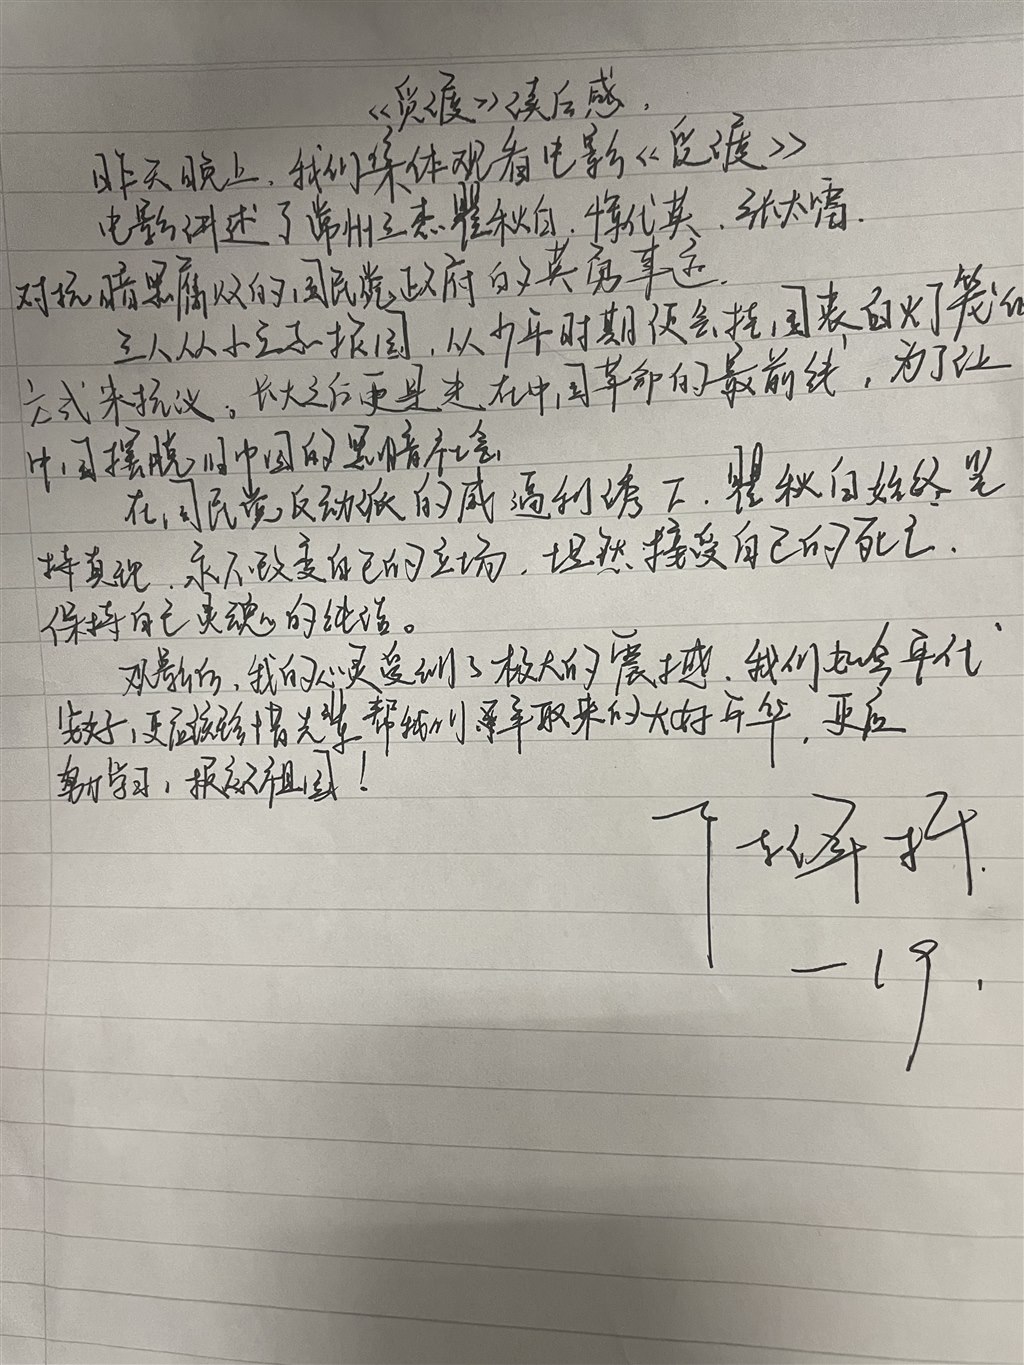 《觅渡》读后感.
昨天晚上,我们集体观看电影《觅渡》
电影讲述了常州三杰瞿秋白,恽代英,张太雷.
对抗暗黑腐败的国民党政府的英勇事迹.
三人从小立志报国,从少年时期便会挂国丧的灯笼的
方式来抗议。长大之后更是走在中国革命的最前线,为了让
中国摆脱旧中国的黑暗社会
在国民党反动派的威逼利诱下,瞿秋白始终坚
持真理,永不改变自己的立场,坦然接受自己的死亡.
保持自己灵魂的纯洁。
观影后,我的心灵受到了极大的震撼,我们如今年代
安好,更应该珍惜先辈帮我们争取来的大好年华,更应
努力学习,报效祖国!
一19.